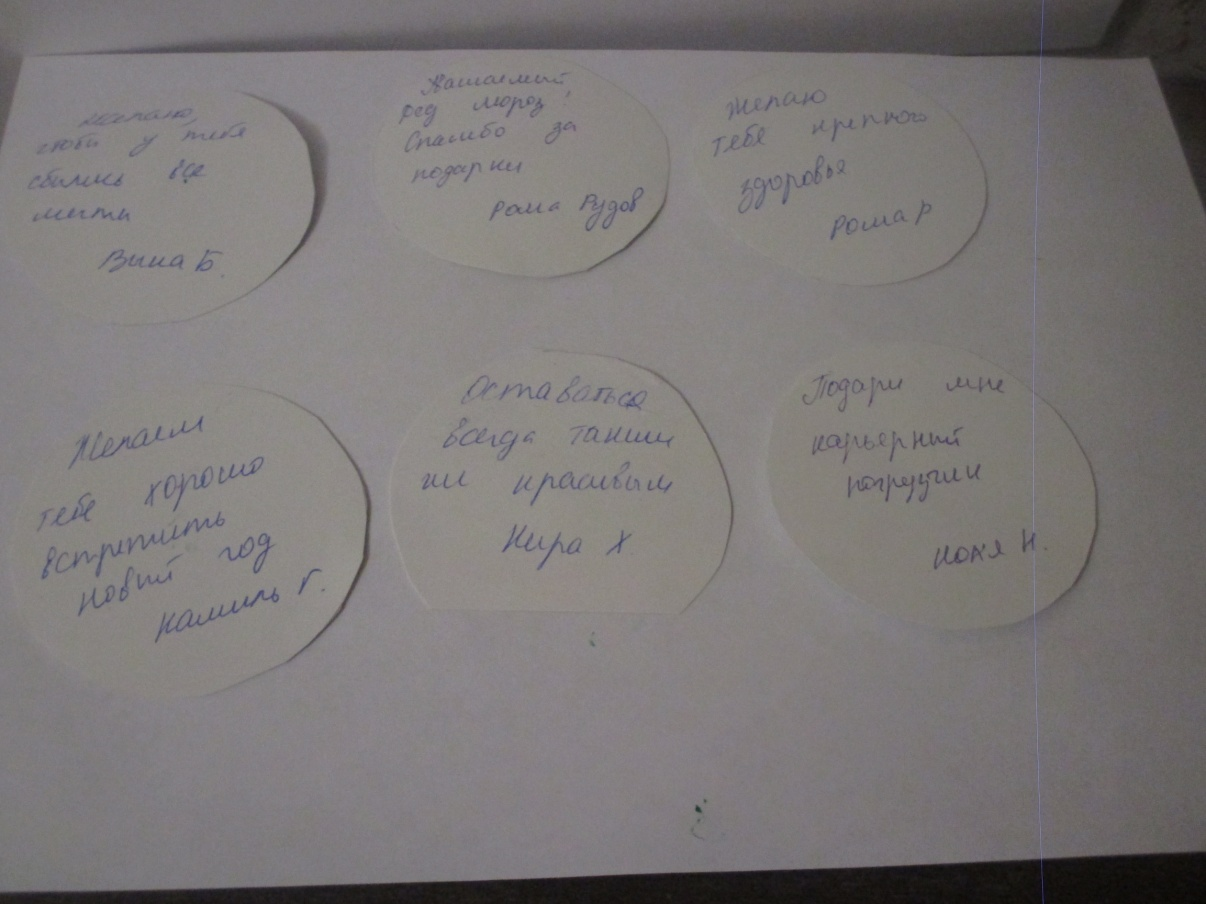 Желаю,
чтобы у тебя
сбылись все
мечты
Вика Б.
дед мороз,
Спасибо за
подарки
Рома Рудов
Желаю
тебе крепкого
здоровья
Рома Р
Желаем
тебе хорошо
встретить
новый год
Камиль Г.
Оставаться
всегда таким
же красивым
Кира Х
Подари мне
карьерный
погрузчик
Н.